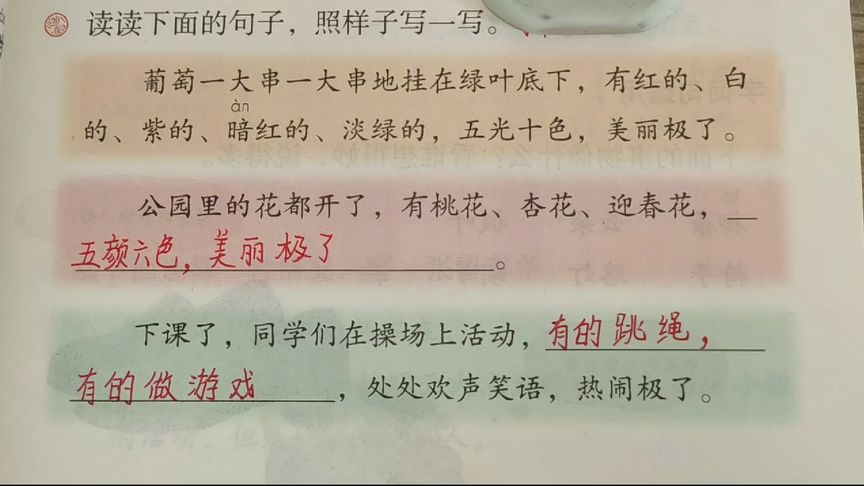 读读下面的句子，照样子写一写。
葡萄一大串一大串地挂在绿叶底下，有红的、白
àn
的、紫的、暗红的、淡绿的，五光十色，美丽极了。
公园里的花都开了，有桃花、杏花、迎春花，
五颜六色，美丽极了。
下课了，同学们在操场上活动，有的跳绳，
有的做游戏，处处欢声笑语，热闹极了。